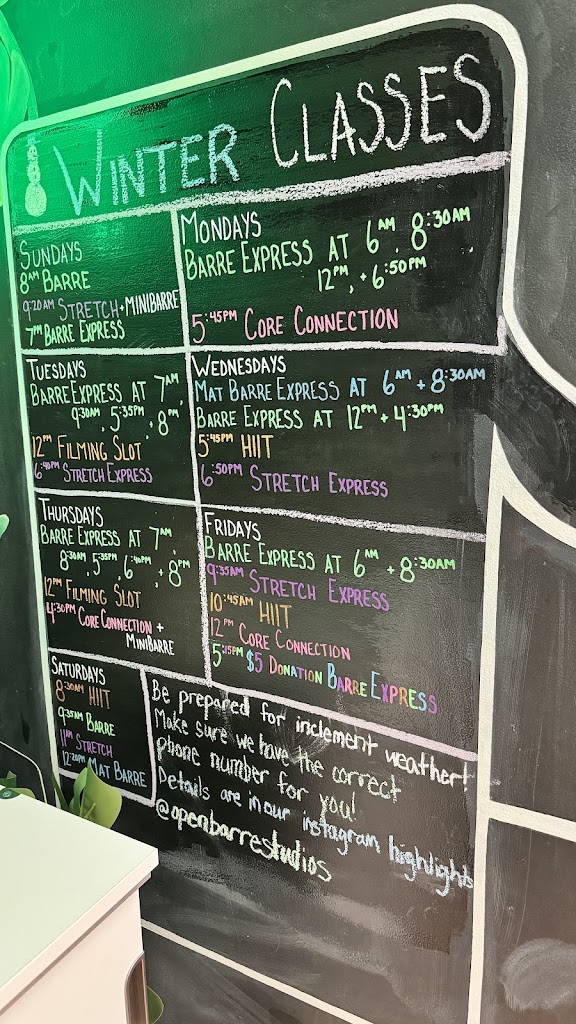 WINTER CLASSES
SUNDAYS
8AM BARRE
9:20AM STRETCH + MINIBARRE
7PM BARRE EXPRESS
MONDAYS
BARRE EXPRESS AT 6AM, 8:30AM,
12PM, + 6:50PM
5:45PM CORE CONNECTION
TUESDAYS
BARRE EXPRESS AT 7AM,
9:30AM, 5:35PM, + 8PM
12PM FILMING SLOT
6:40PM STRETCH EXPRESS
WEDNESDAYS
MAT BARRE EXPRESS AT 6AM + 8:30AM
BARRE EXPRESS AT 12PM + 4:30PM
5:45PM HIIT
6:50PM STRETCH EXPRESS
THURSDAYS
BARRE EXPRESS AT 7AM,
8:30AM, 5:35PM, 6:40PM, + 8PM
12PM FILMING SLOT
4:30PM CORE CONNECTION +
MINIBARRE
FRIDAYS
BARRE EXPRESS AT 6AM + 8:30AM
9:35AM STRETCH EXPRESS
10:45AM HIIT
12PM CORE CONNECTION
5:15PM $5 DONATION BARRE EXPRESS
SATURDAYS
8:30AM HIIT
9:35AM BARRE
11AM STRETCH
12:20PM MAT BARRE
Be prepared for inclement weather!
Make sure we have the correct
phone number for you!
Details are in our instagram highlights
@openbarrestudios